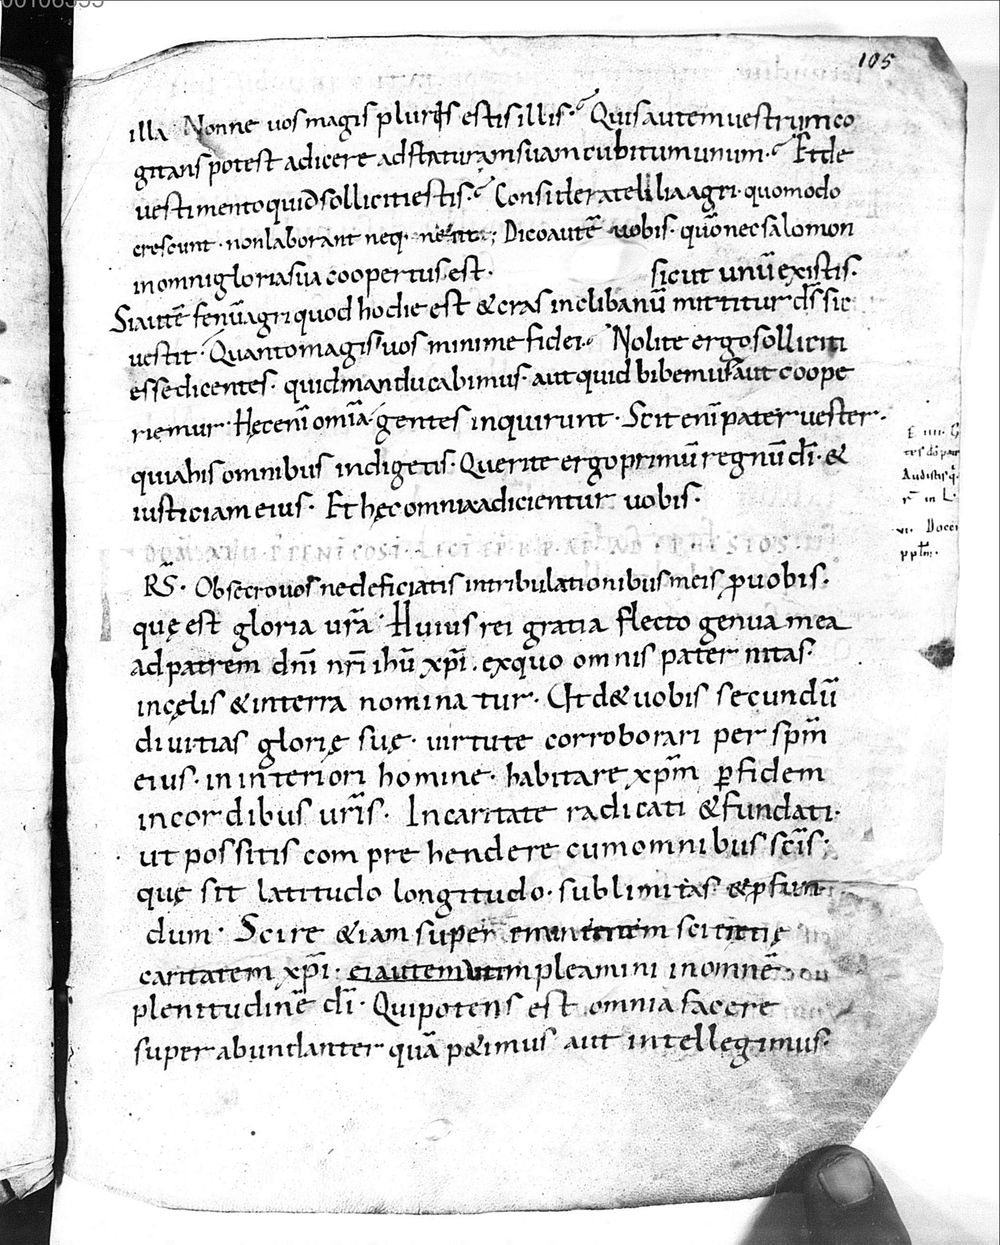 00106335
105
illa · Nonne uos magis pluris estis illis · Quis autem uestrum co
gitans potest adicere ad staturam suam cubitum unum · Et de
uestimento quid solliciti estis · Considerate lilia agri · quomodo
crescunt · non laborant neq· nent ; Dico autē uobis · quō nec salomon
in omni gloria sua coopertus est · sicut unū ex istis ·
Si autē fenū agri quod hodie est & cras in clibanū mittitur ds̄ sic
uestit · Quanto magis uos minime fidei · Nolite ergo solliciti
esse dicentes · quid manducabimus · aut quid bibemus aut coope
riemur · Hęc enī omīa gentes inquirunt · Scit enī pater uester ·
quia his omnibus indigetis · Querite ergo primū regnū dī · &
iusticiam eius · Et hęc omnia adicientur uobis ·
RS̄ · Obsecro uos ne deficiatis in tribulationibus meis ꝓ uobis ·
quę est gloria ur̄a · Huius rei gratia flecto genua mea
ad patrem dn̄i nr̄i ihū xp̄i · ex quo omnis pater nitas
in cęlis & in terra nomina tur · Ut d& uobis secundū
diuitias glorię suę · uirtute corroborari per sp̄m
eius · in interiori homine · habitare xp̄m ꝑ fidem
in cordibus ur̄is · In caritate radicati & fundati ·
ut possitis com pre hendere cum omnibus sc̄is ·
quę sit latitudo longitudo · sublimitas & ꝓfun
dum · Scire &iam super eminentem scientię
caritatem xp̄i · pleamini in omnē
plenitudinē dī · Qui potens est omnia facere
superabundanter quā p&imus aut intellegimus ·